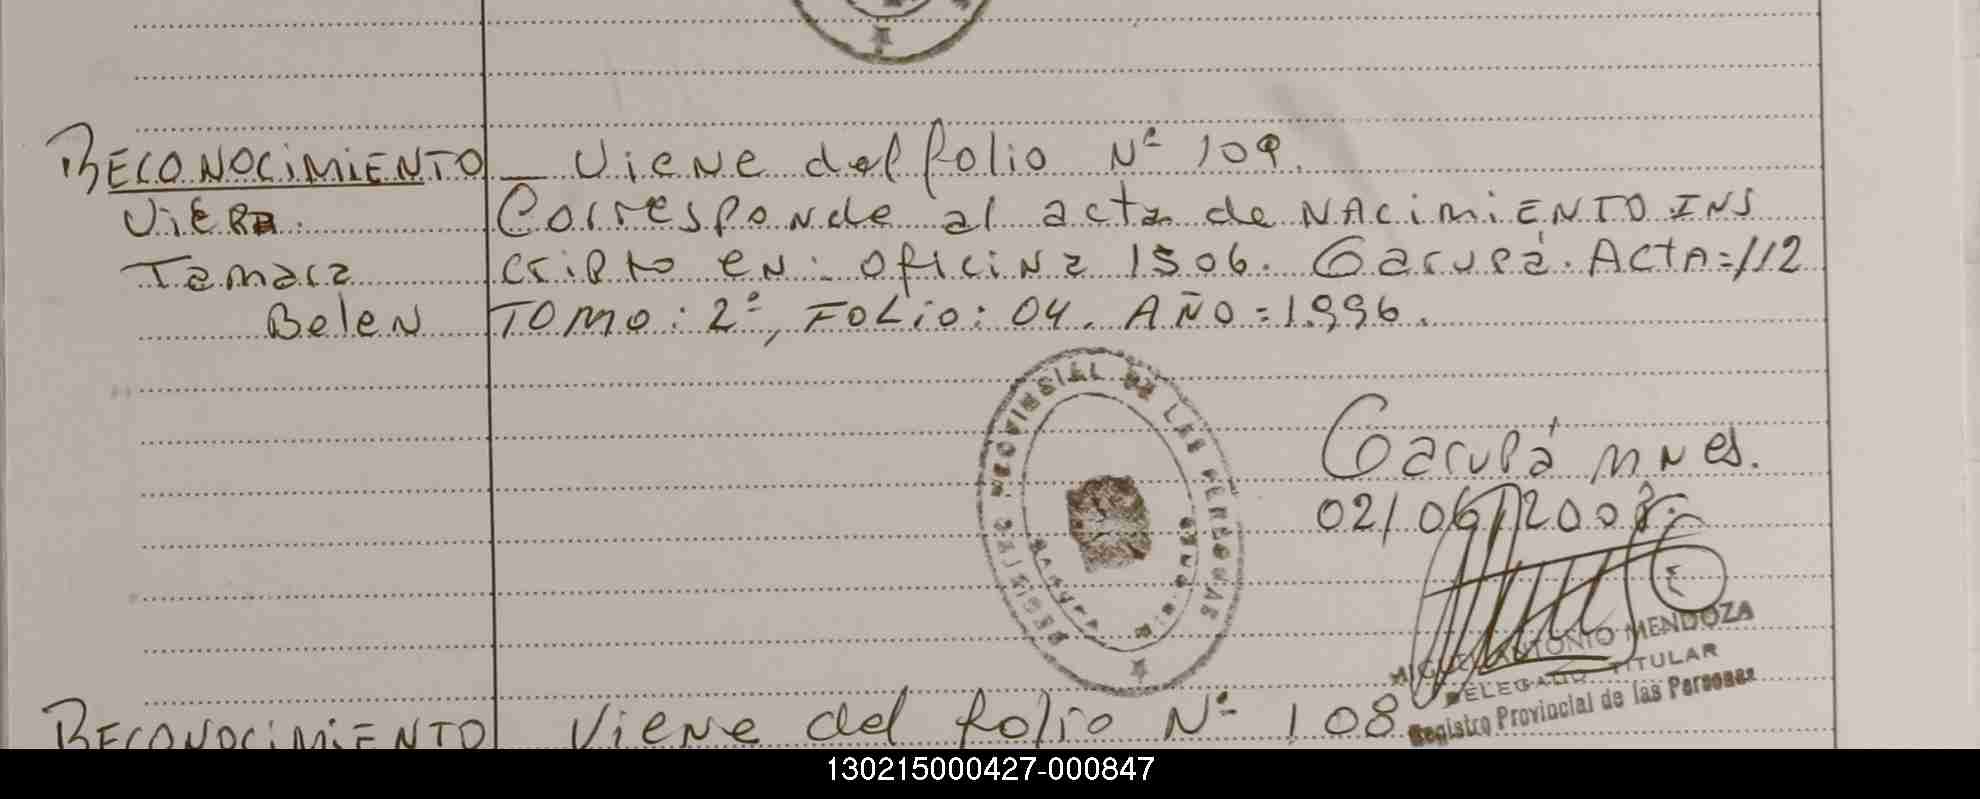 RECONOCIMIENTO — Viene del folio Nº 109.
Viera Corresponde al acta de NACIMIENTO INS
Tamara cripto en: oficina 1506. Garupá. ACTA=112
Belen TOMO: 2º, FOLIO: 04. AÑO=1.996.
REGISTRO PROVINCIAL DE LAS PERSONAS
Garupá mnes.
02/06/2008
MIGUEL ANTONIO MENDOZA
DELEGADO TITULAR
Registro Provincial de las Personas
RECONOCIMIENTO Viene del folio Nº 108
130215000427-000847